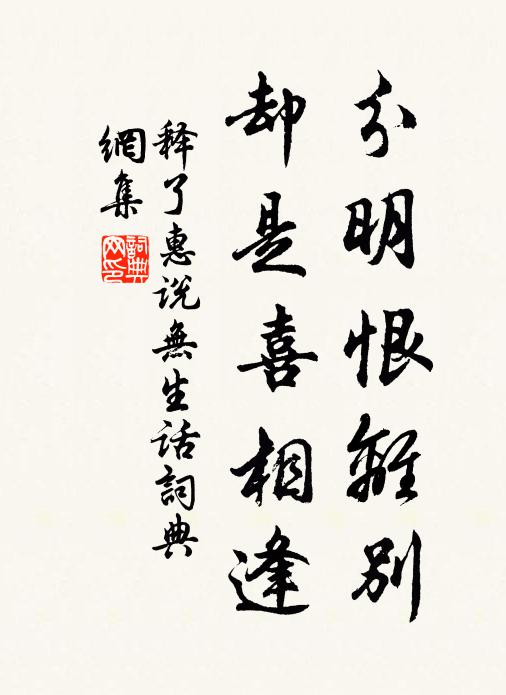 分明恨離別
却是喜相逢
释了惠说無生话詞典
網集
詞典
网印